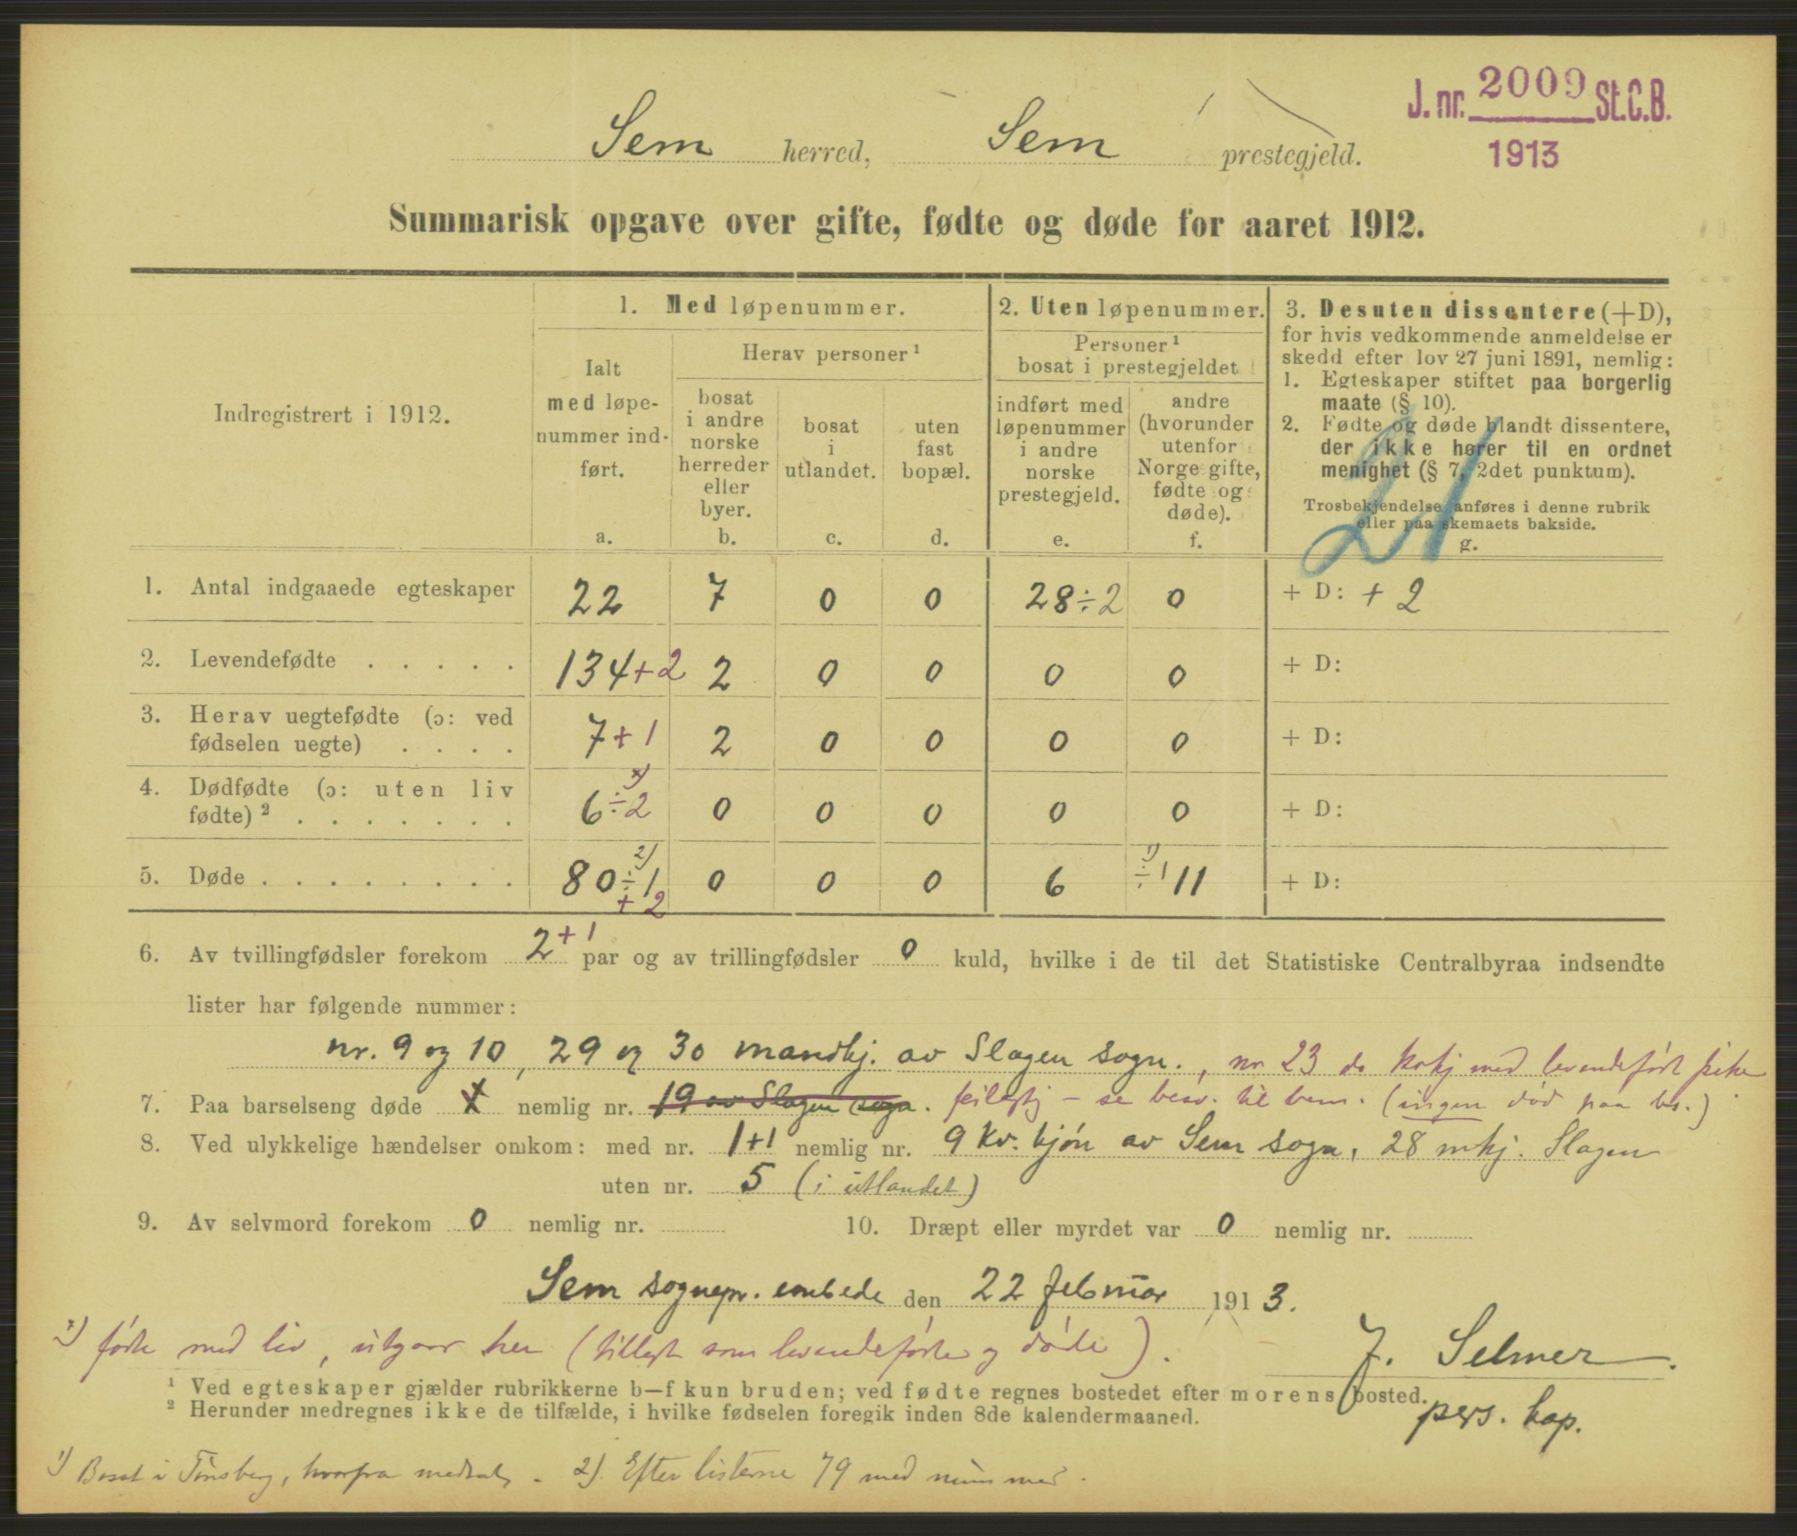 J. nr. 2009 St.C.B.
1913
Sem herred, Sem prestegjeld.
Summarisk opgave over gifte, fødte og døde for aaret 1912.
Indregistrert i 1912.
1. Med løpenummer.
Ialt
med løpe-
nummer ind-
ført.
a.
Herav personer ¹
bosat
i andre
norske
herreder
eller
byer.
b.
bosat
i
utlandet.
c.
uten
fast
bopæl.
d.
2. Uten løpenummer.
Personer ¹
bosat i prestegjeldet
indført med
løpenummer
i andre
norske
prestegjeld.
e.
andre
(hvorunder
utenfor
Norge gifte,
fødte og
døde).
f.
3. Desuten dissentere (+D),
for hvis vedkommende anmeldelse er
skedd efter lov 27 juni 1891, nemlig:
1. Egteskaper stiftet paa borgerlig
maate (§ 10).
2. Fødte og døde blandt dissentere,
der ikke hører til en ordnet
menighet (§ 7, 2det punktum).
Trosbekjendelse anføres i denne rubrik
eller paa skemaets bakside.
g.
21
1. Antal indgaaede egteskaper 22 7 0 0 28÷2 0 + D: + 2
2. Levendefødte . . . . . 134+2 2 0 0 0 0 + D:
3. Herav uegtefødte (ɔ: ved
fødselen uegte) . . . . 7+1 2 0 0 0 0 + D:
4. Dødfødte (ɔ: uten liv
fødte) ² . . . . . . . 6÷2 x) 0 0 0 0 0 + D:
5. Døde . . . . . . . . 80÷1 2) + 2 0 0 0 6 ÷1 1) 11 + D:
6. Av tvillingfødsler forekom 2+1 par og av trillingfødsler 0 kuld, hvilke i de til det Statistiske Centralbyraa indsendte
lister har følgende nummer:
nr. 9 og 10, 29 og 30 mandkj. av Slagen sogn., nr 23 do kvkj med levendefødt pike
7. Paa barselseng døde nemlig nr. 19 av Slagen sogn. feilagtig – se besv. til bem. (ingen død paa bs.)
8. Ved ulykkelige hændelser omkom: med nr. 1+1 nemlig nr. 9 kv. kjön av Sem sogn, 28 mkj. Slagen
uten nr. 5 (i utlandet)
9. Av selvmord forekom 0 nemlig nr.
10. Dræpt eller myrdet var 0 nemlig nr.
Sem sognepr. embede den 22 februar 1913.
x) födte med liv, utgaar her (tillagt som levendefödte og döde).
J. Selmer.
pers. kap.
¹ Ved egteskaper gjælder rubrikkerne b—f kun bruden; ved fødte regnes bostedet efter morens bosted.
² Herunder medregnes ikke de tilfælde, i hvilke fødselen foregik inden 8de kalendermaaned.
1) Bosat i Tönsberg, hvorfra medtat. 2) Efter listerne 79 med nummer.